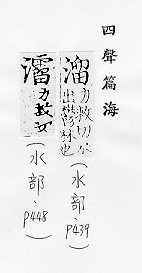 四聲篇海
溜力救切水
出鬱林也
(水部、p439)
力救切
(水部、p448)